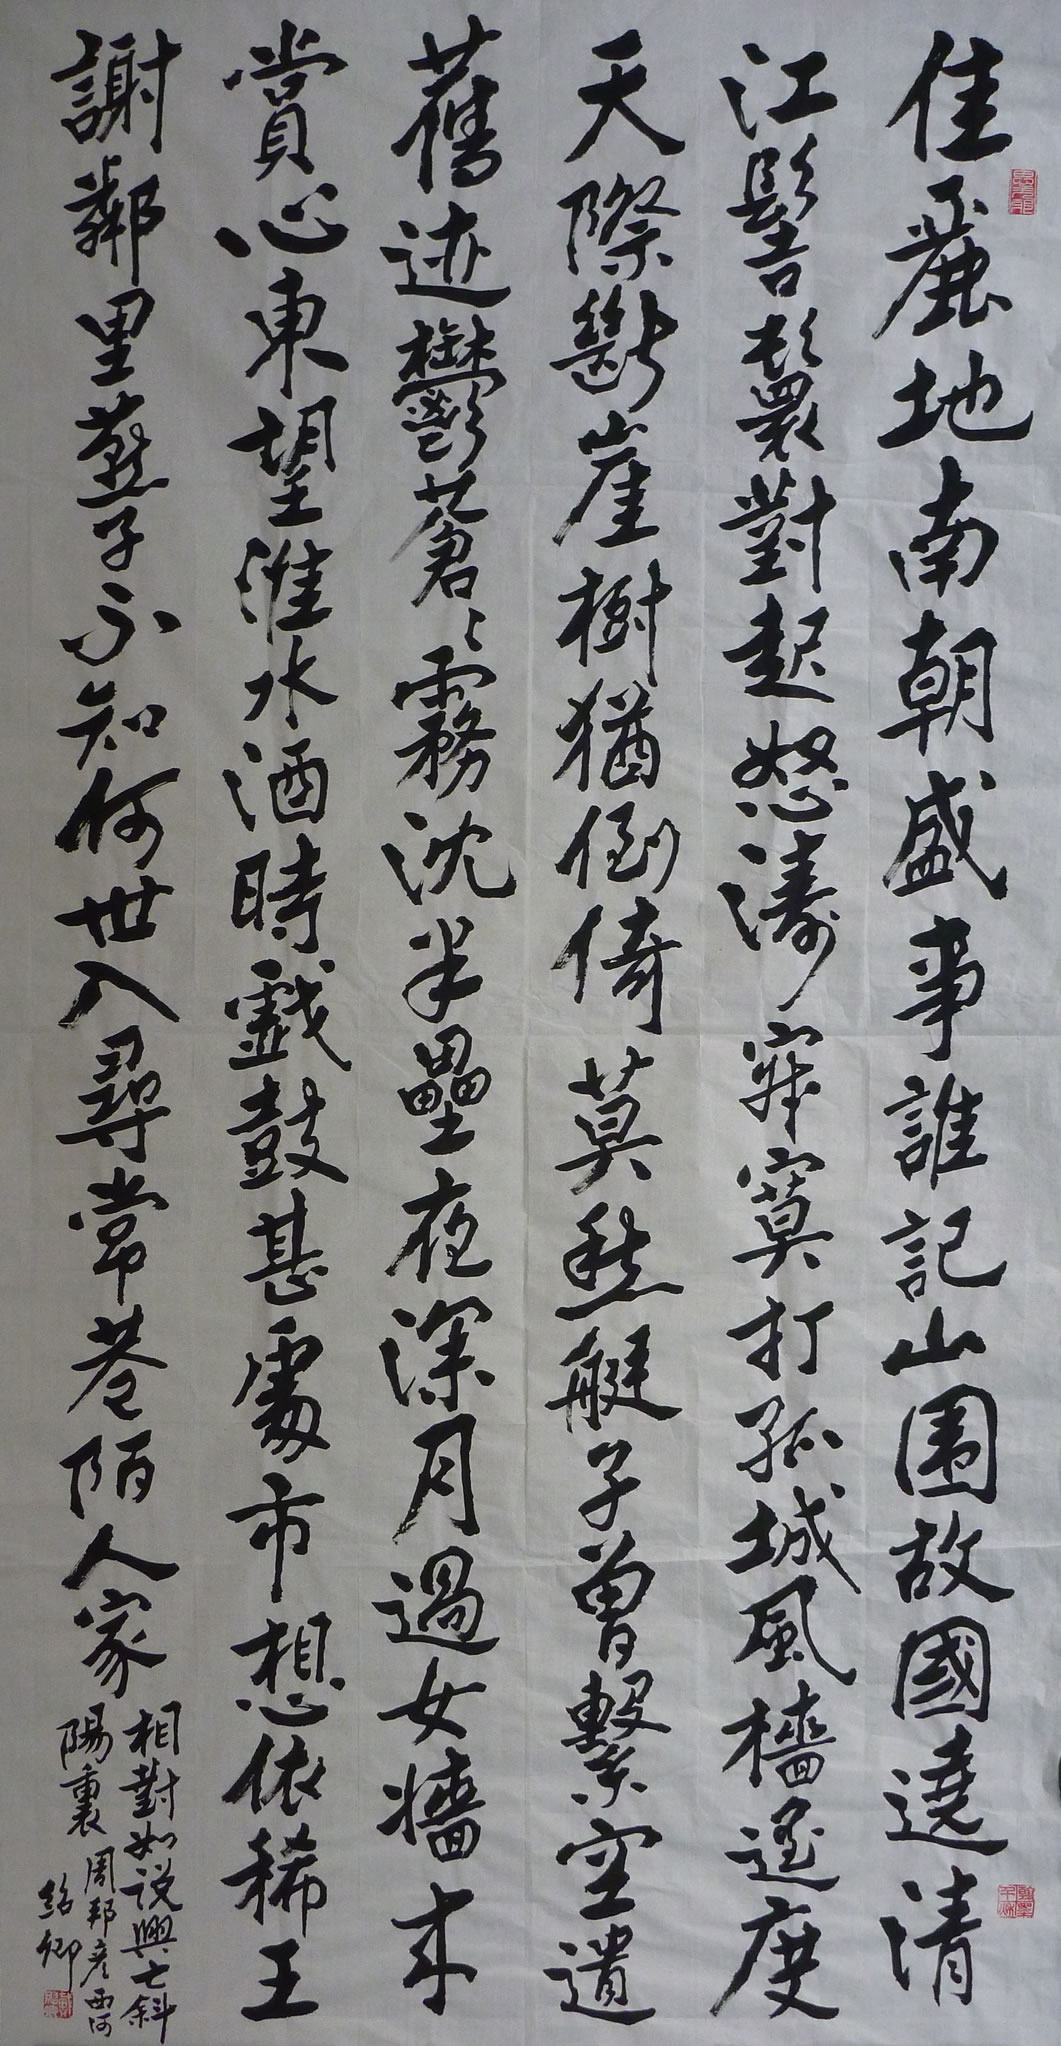 佳麗地南朝盛事誰記山围故國遶清
江髻鬟對起怒濤寂寞打孤城風檣遥度
天際斷崖樹猶倒倚莫愁艇子曾繫空遺
舊迹鬱蒼〻霧沈半壘夜深月過女牆来
賞心東望淮水酒時戲鼓甚處市想依稀王
謝鄰里燕子不知何世入尋常巷陌人家
相對如说興亡斜
陽裏 周邦彦西河